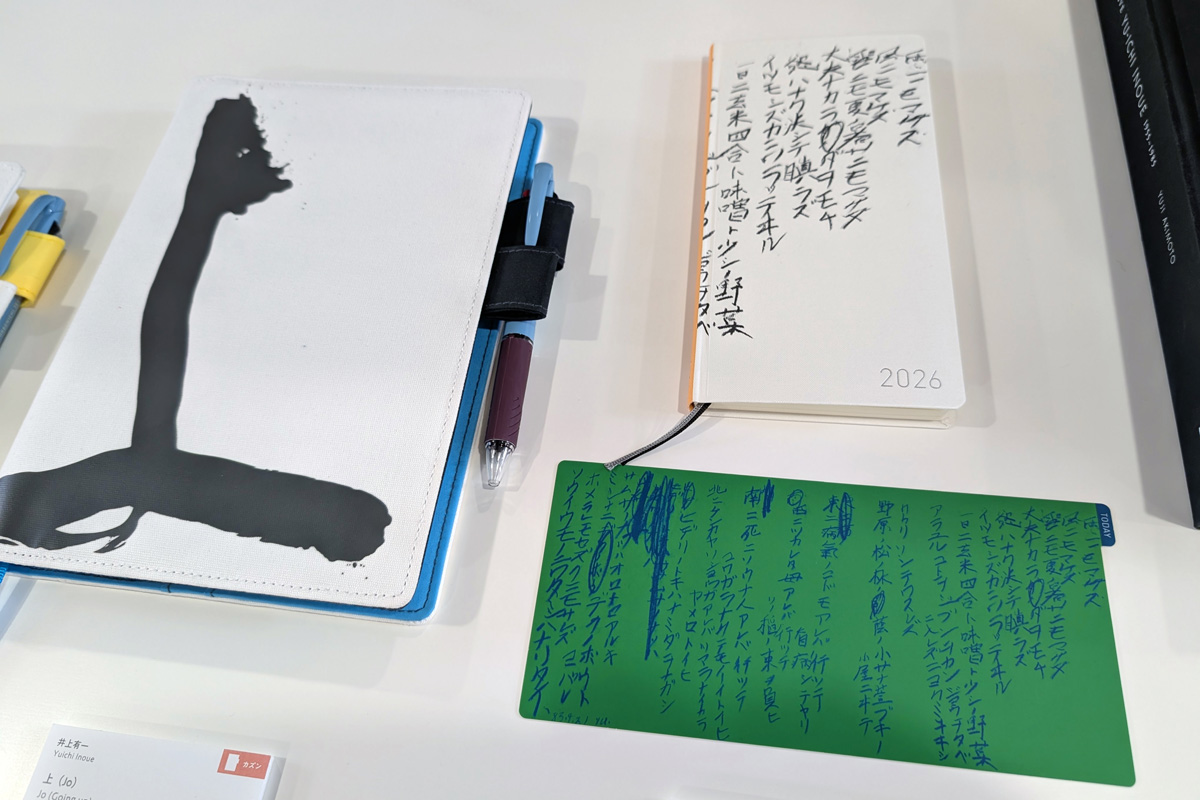 雨ニモマケズ
風ニモマケズ
雪ニモ夏ノ暑サニモマケズ
丈夫ナカラダヲモチ
慾ハナク決シテ瞋ラズ
イツモシズカニワラッテヰル
一日ニ玄米四合ト味噌ト少シノ野菜
2026
TODAY
雨ニモマケズ
風ニモマケズ
雪ニモ夏ノ暑サニモマケズ
丈夫ナカラダヲモチ
慾ハナク決シテ瞋ラズ
イツモシズカニワラッテヰル
一日ニ玄米四合ト味噌ト少シノ野菜
ヲタベ
アラユルコトヲジブンヲカンジョウ
ニ入レズニヨクミキキシ
ワカリソシテワスレズ
野原ノ松ノ林ノ蔭ノ小サナ萱ブキノ
小屋ニヰテ
東ニ病気ノコドモアレバ行ッテ
看病シテヤリ
西ニツカレタ母アレバ行ッテ
ソノ稲ノ束ヲ負ヒ
南ニ死ニソウナ人アレバ行ッテ
コワガラナクテモイイトイヒ
北ニケンカヤソショウガアレバツマラナイカラ
ヤメロトイヒ
ヒデリノトキハナミダヲナガシ
サムサノナツハオロオロアルキ
ミンナニデクノボウト
ヨバレ
ホメラレモセズクニモサレズ
ソウイウモノニワタシハナリタイ
YU-ICHI INOUE 1955-1985
YUJI AKIMOTO
井上有一
Yuichi Inoue
カズン
上 (Jo)